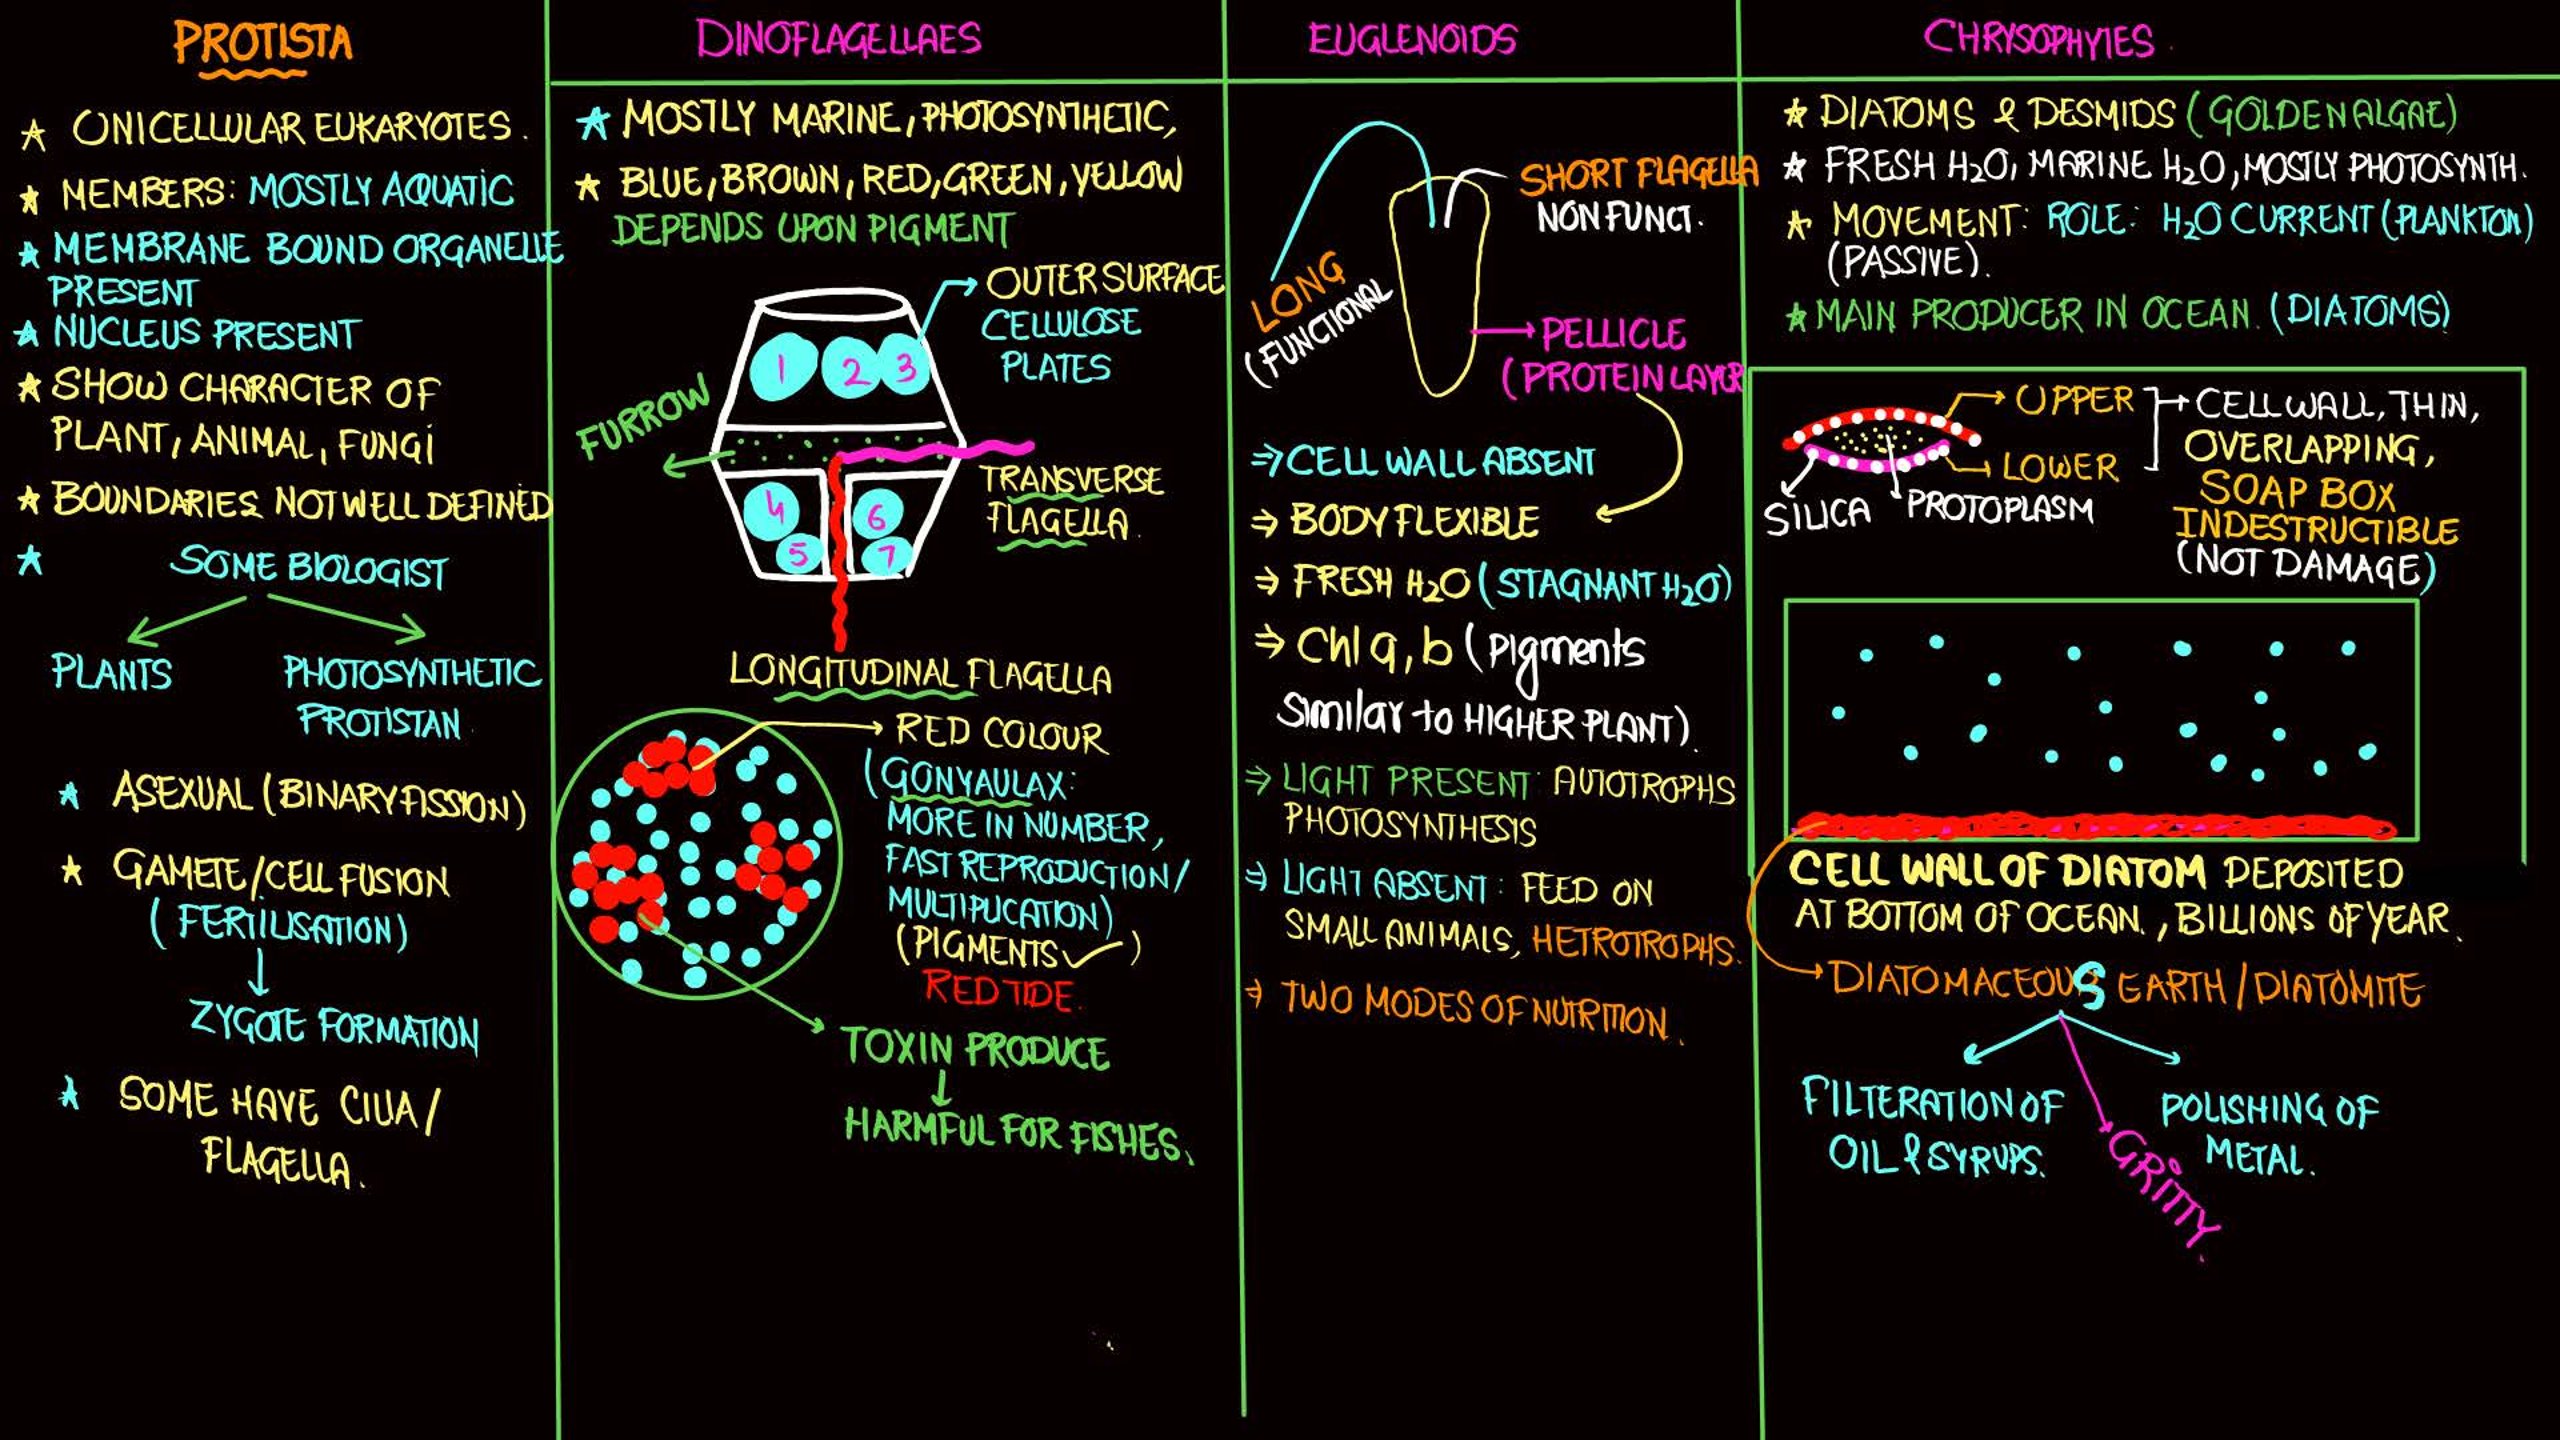 PROTISTA
UNICELLULAR EUKARYOTES.
MEMBERS: MOSTLY AQUATIC
MEMBRANE BOUND ORGANELLE
PRESENT
NUCLEUS PRESENT
SHOW CHARACTER OF
PLANT, ANIMAL, FUNGI
BOUNDARIES NOT WELL DEFINED
SOME BIOLOGIST
PLANTS
PHOTOSYNTHETIC
PROTISTAN
ASEXUAL (BINARY FISSION)
GAMETE/CELL FUSION
(FERTILISATION)
ZYGOTE FORMATION
SOME HAVE CILIA/
FLAGELLA.
DINOFLAGELLAES
MOSTLY MARINE, PHOTOSYNTHETIC,
BLUE, BROWN, RED, GREEN, YELLOW
DEPENDS UPON PIGMENT
OUTER SURFACE
CELLULOSE
PLATES
1 2 3
FURROW
4 6
5 7
TRANSVERSE
FLAGELLA.
LONGITUDINAL FLAGELLA
RED COLOUR
(GONYAULAX:
MORE IN NUMBER,
FAST REPRODUCTION/
MULTIPLICATION)
(PIGMENTS ✓)
RED TIDE.
TOXIN PRODUCE
HARMFUL FOR FISHES.
EUGLENOIDS
SHORT FLAGELLA
NON FUNCT.
LONG
(FUNCTIONAL
PELLICLE
(PROTEIN LAYER
⇒ CELL WALL ABSENT
⇒ BODY FLEXIBLE
⇒ FRESH H2O (STAGNANT H2O)
⇒ Chl a, b (Pigments
Similar to HIGHER PLANT).
⇒ LIGHT PRESENT: AUTOTROPHS
PHOTOSYNTHESIS
⇒ LIGHT ABSENT: FEED ON
SMALL ANIMALS, HETROTROPHS.
⇒ TWO MODES OF NUTRITION.
CHRYSOPHYTES.
DIATOMS & DESMIDS (GOLDEN ALGAE)
FRESH H2O, MARINE H2O, MOSTLY PHOTOSYNTH.
MOVEMENT: ROLE: H2O CURRENT (PLANKTON)
(PASSIVE).
MAIN PRODUCER IN OCEAN. (DIATOMS)
UPPER
LOWER
SILICA
PROTOPLASM
CELL WALL, THIN,
OVERLAPPING,
SOAP BOX
INDESTRUCTIBLE
(NOT DAMAGE)
CELL WALL OF DIATOM DEPOSITED
AT BOTTOM OF OCEAN., BILLIONS OF YEAR.
DIATOMACEOUS EARTH/DIATOMITE
FILTERATION OF
OIL & SYRUPS.
GRITTY.
POLISHING OF
METAL.